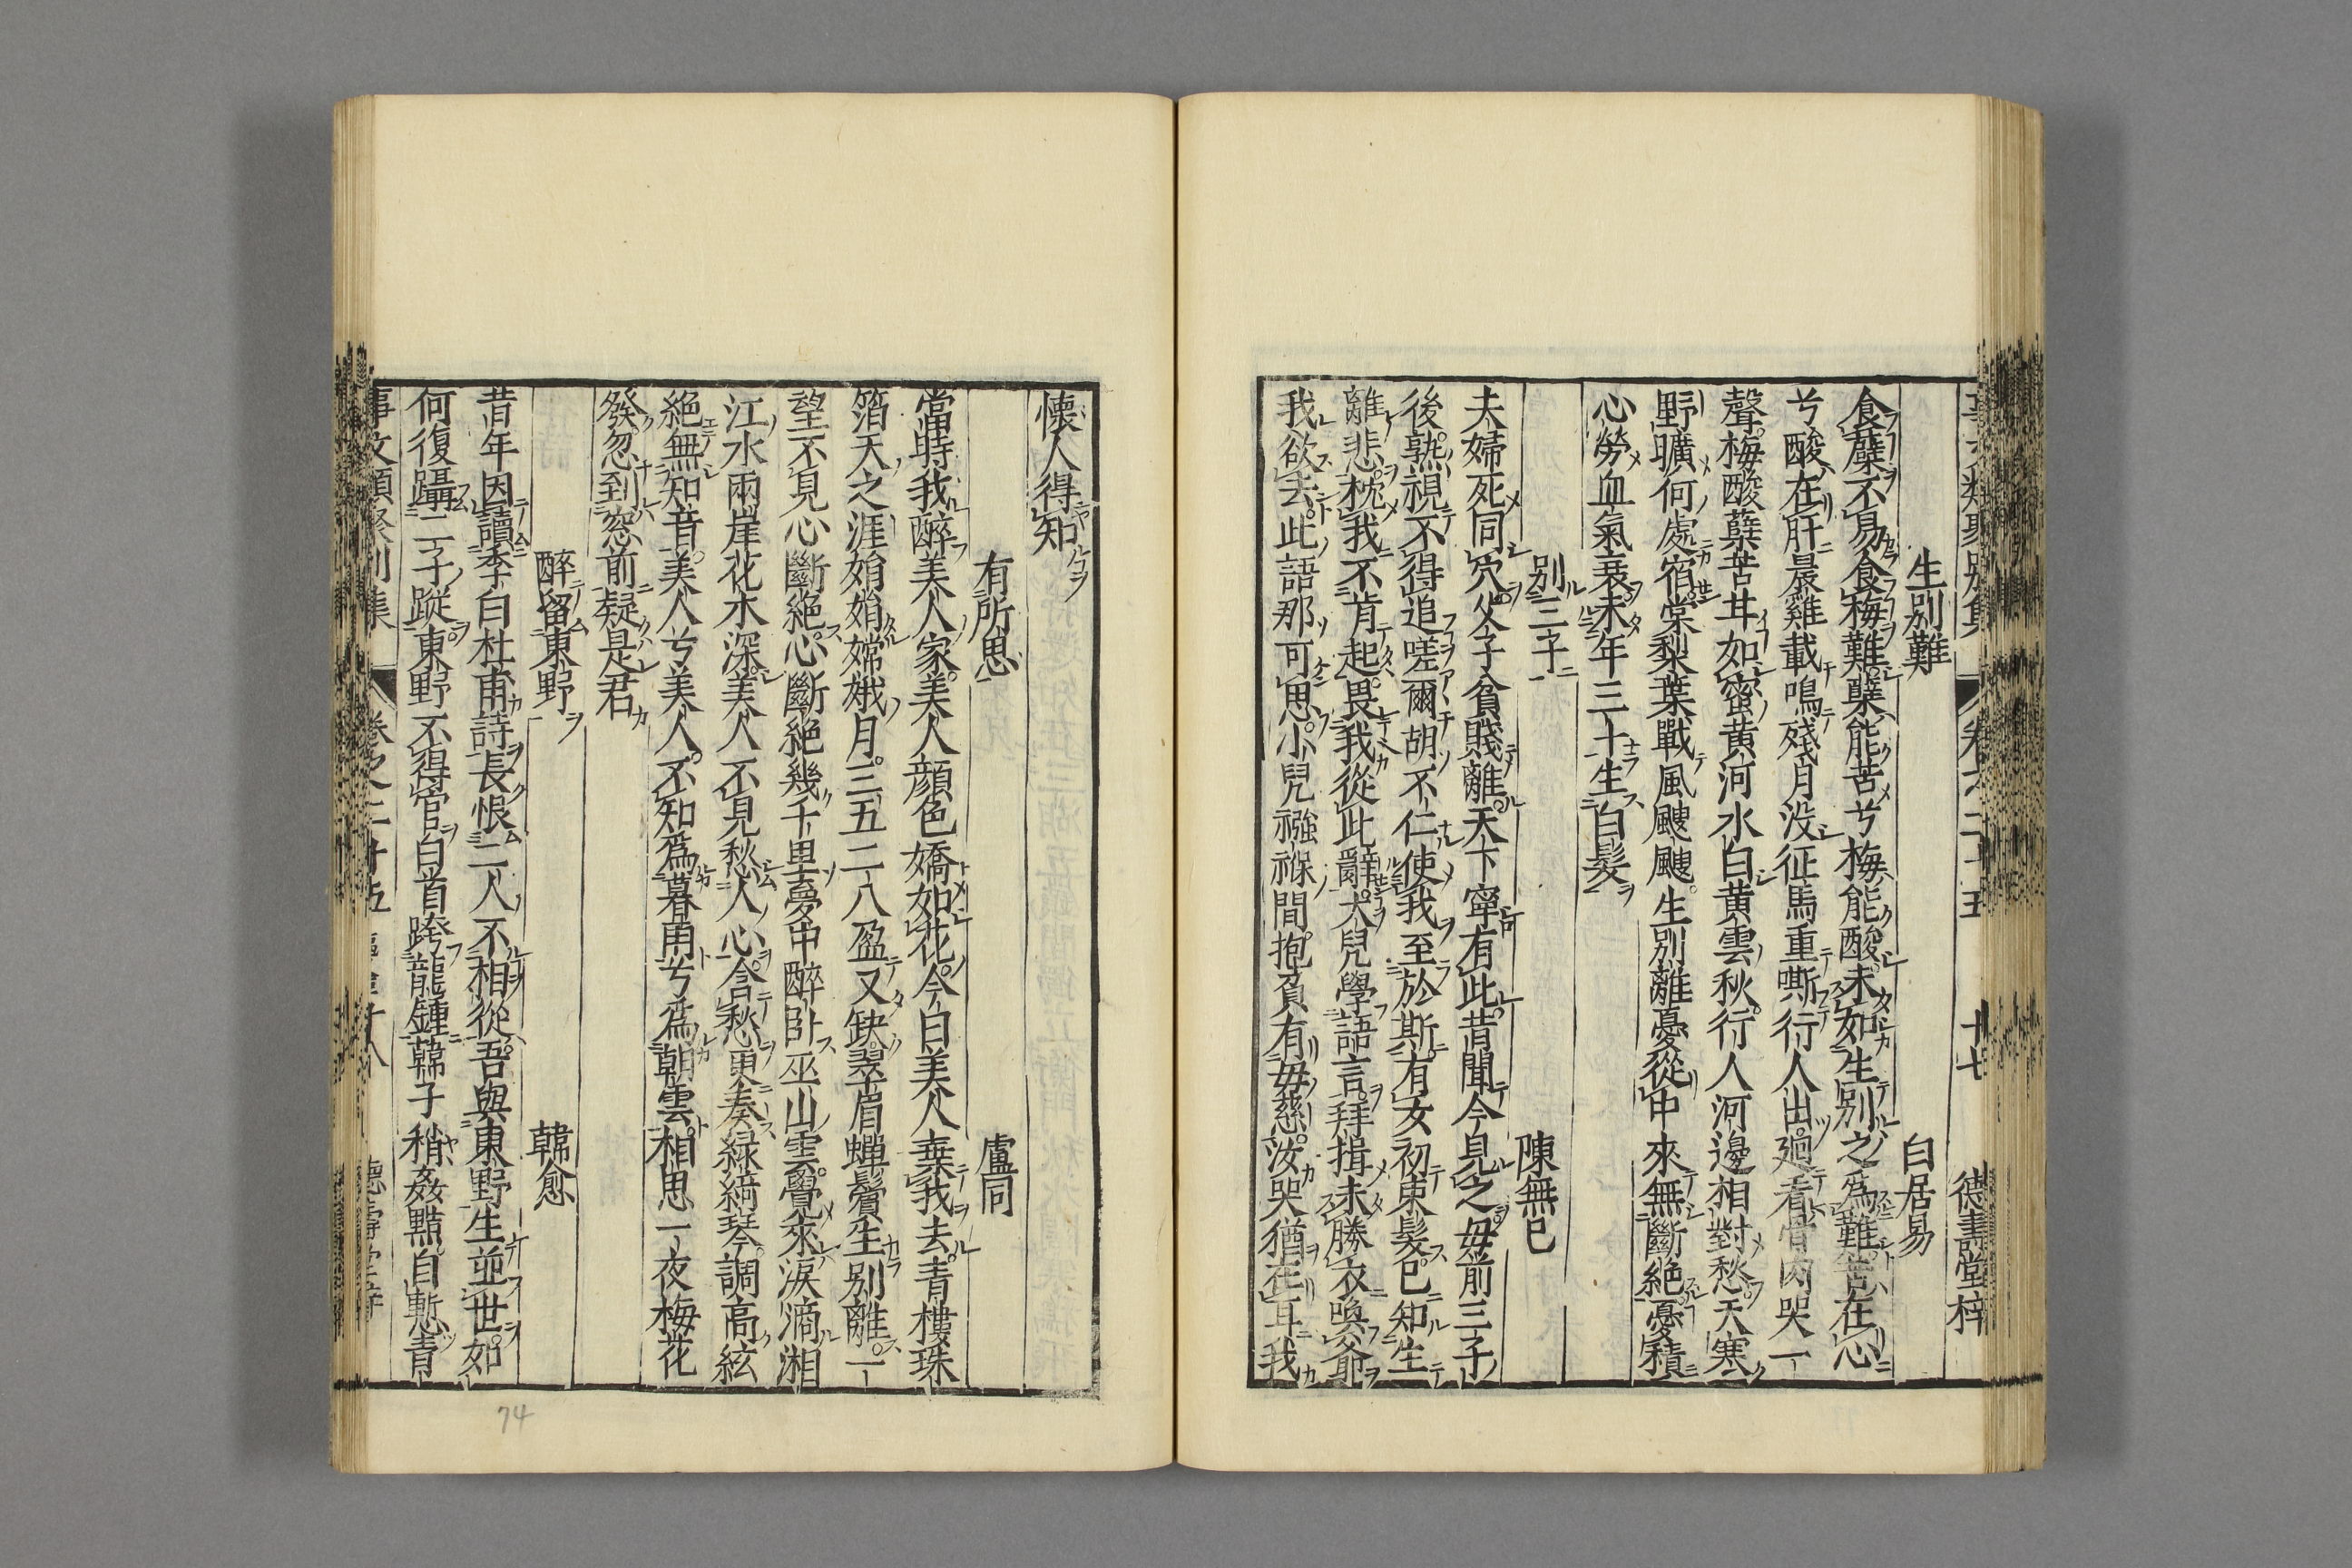 生別難 白居易
食蘗不易食梅難蘗能苦兮梅能酸未如生別之為難苦在心
兮酸在肝晨雞載鳴殘月没征馬重嘶行人出廻看骨肉哭一
聲梅酸蘗苦甘如蜜黄河水白黄雲秋行人河邊相對愁天寒
野曠何處宿棠梨葉戰風颼颼生別離憂從中來無斷絶憂積
心勞血氣衰未年三十生白髮
別三子 陳無已
夫婦死同穴父子貧賤離天下寧有此昔聞今見之毋前三子
後熟視不得追嗟爾胡不仁使我至於斯有女初束髮已知生
離悲枕我不肯起畏我從此辭大兒學語言拜揖未勝衣喚爺
我欲去此語那可思小兒襁褓間抱負有毋慈汝哭猶在耳我
懐人得知
有所思 盧仝
當時我醉美人家美人顔色嬌如花今日美人棄我去青樓珠
箔天之涯娟娟嫦娥月三五二八盈又缺翠眉蟬鬢生別離一
望不見心斷絶心斷絶幾千里夢中醉臥巫山雲覺來淚滴湘
江水兩崖花木深美人不見愁人心含愁更奏緑綺琴調高絃
絶無知音美人兮美人不知為暮雨兮為朝雲相思一夜梅花
發忽到窓前疑是君
醉留東野 韓愈
昔年因讀李白杜甫詩長恨二人不相從吾與東野生並世如
何復躡二子蹤東野不得官白首跨龍鍾韓子稍姦黠自慙青
事文類聚別集 卷之二十五
74